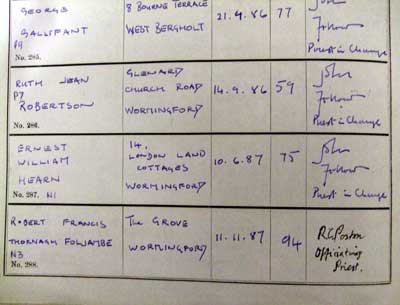 GEORGE
GALLIFANT
P9
No. 285.
8 BOURNE TERRACE
WEST BERGHOLT
21.9.86
77
John
Follows
Priest in Charge
RUTH JEAN
P7
ROBERTSON
No. 286.
GLENARD
CHURCH ROAD
WORMINGFORD
14.9.86
59
John
Follows
Priest in Charge
ERNEST
WILLIAM
HEARN
No. 287. N1
14,
LONDON LAND
COTTAGES
WORMINGFORD
10.6.87
75
John
Follows
Priest in Charge
ROBERT FRANCIS
THORNAGH FOLJAMBE
N3
No. 288.
THE GROVE
WORMINGFORD
11.11.87
94
Officiating
Priest.